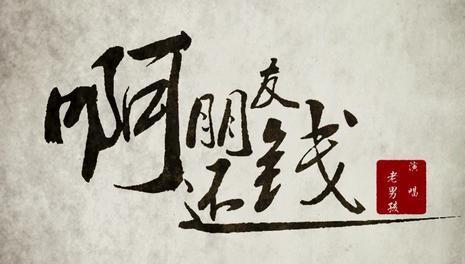 啊朋友还钱
演唱
老男孩